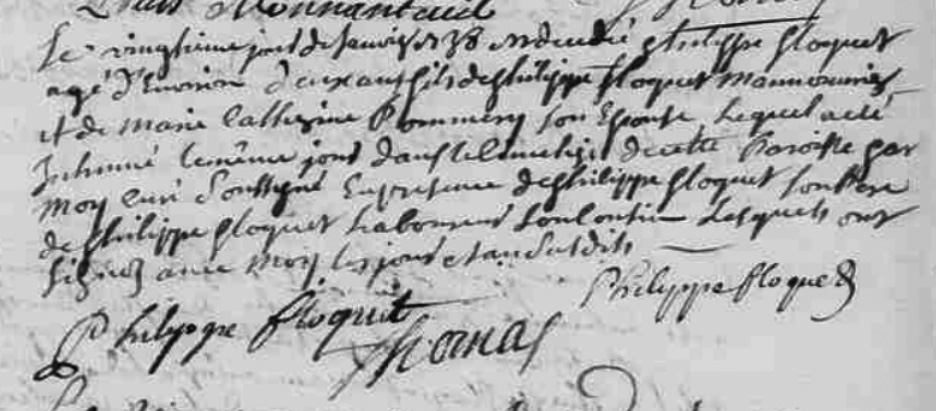 Le vingtieme jour de Janvier 1738 est decedé philippe floquet
agé d'Environ deux ans fils de philippe floquet Manouvrier
et de marie Catherine Pommery son Epouse lequel a eté
Inhumé le même jour dans le cimetiere de cette Paroisse par
moy curé soussigné En presence de philippe floquet son Pere
de philippe floquet Laboureur son cousin Lesquels ont
signez avec moy les jour et an susdits
Philippe floquet
Philippe floquet
Thomas